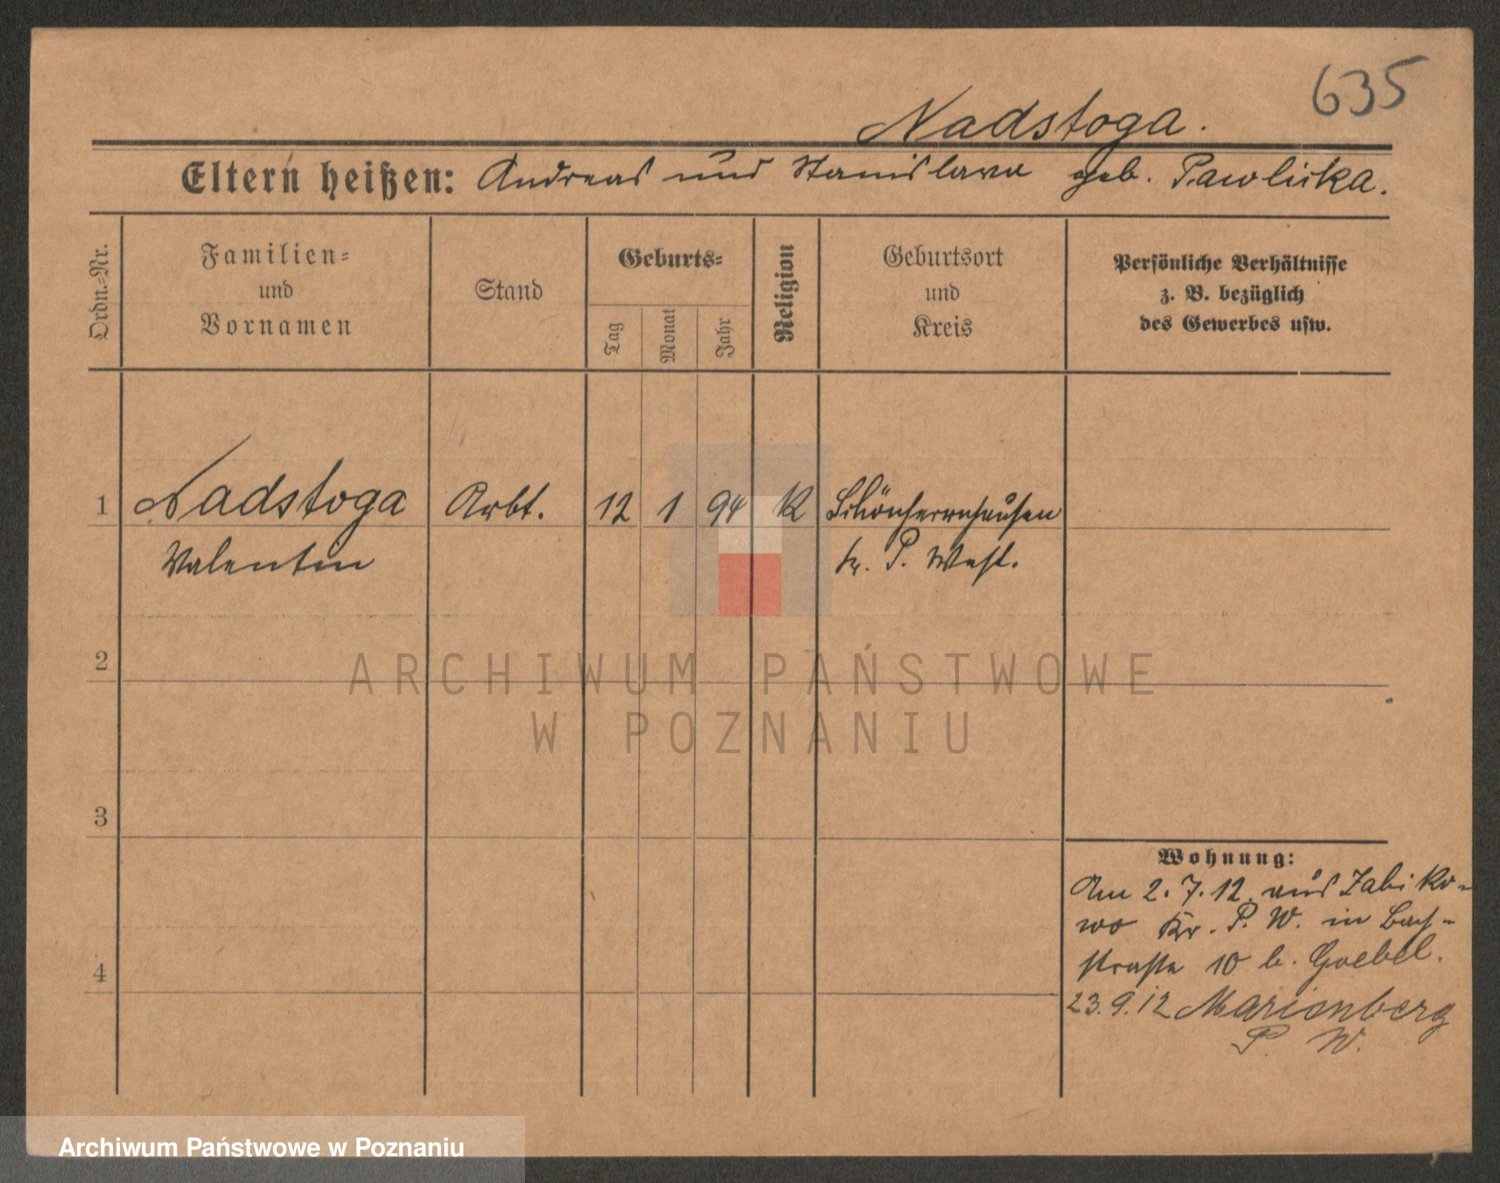 635
Nadstoga.
Eltern heißen: Andreas und Stanislawa geb. Pawlicka.
Ordn.-Nr.
Familien-
und
Vornamen
Stand
Geburts-
Tag
Monat
Jahr
Religion
Geburtsort
und
Kreis
Persönliche Verhältnisse
z. B. bezüglich
des Gewerbes usw.
1 Nadstoga Arbt. 12 1 94 K Schönherrnhausen
Valentin Kr. P. West.
2
3
4
Wohnung:
Am 2.7.12. aus Zabiko-
wo Kr. P. W. in Bach-
straße 10 b. Goebel.
23.9.12 Marienberg
P. W.
ARCHIWUM PAŃSTWOWE
W POZNANIU
Archiwum Państwowe w Poznaniu